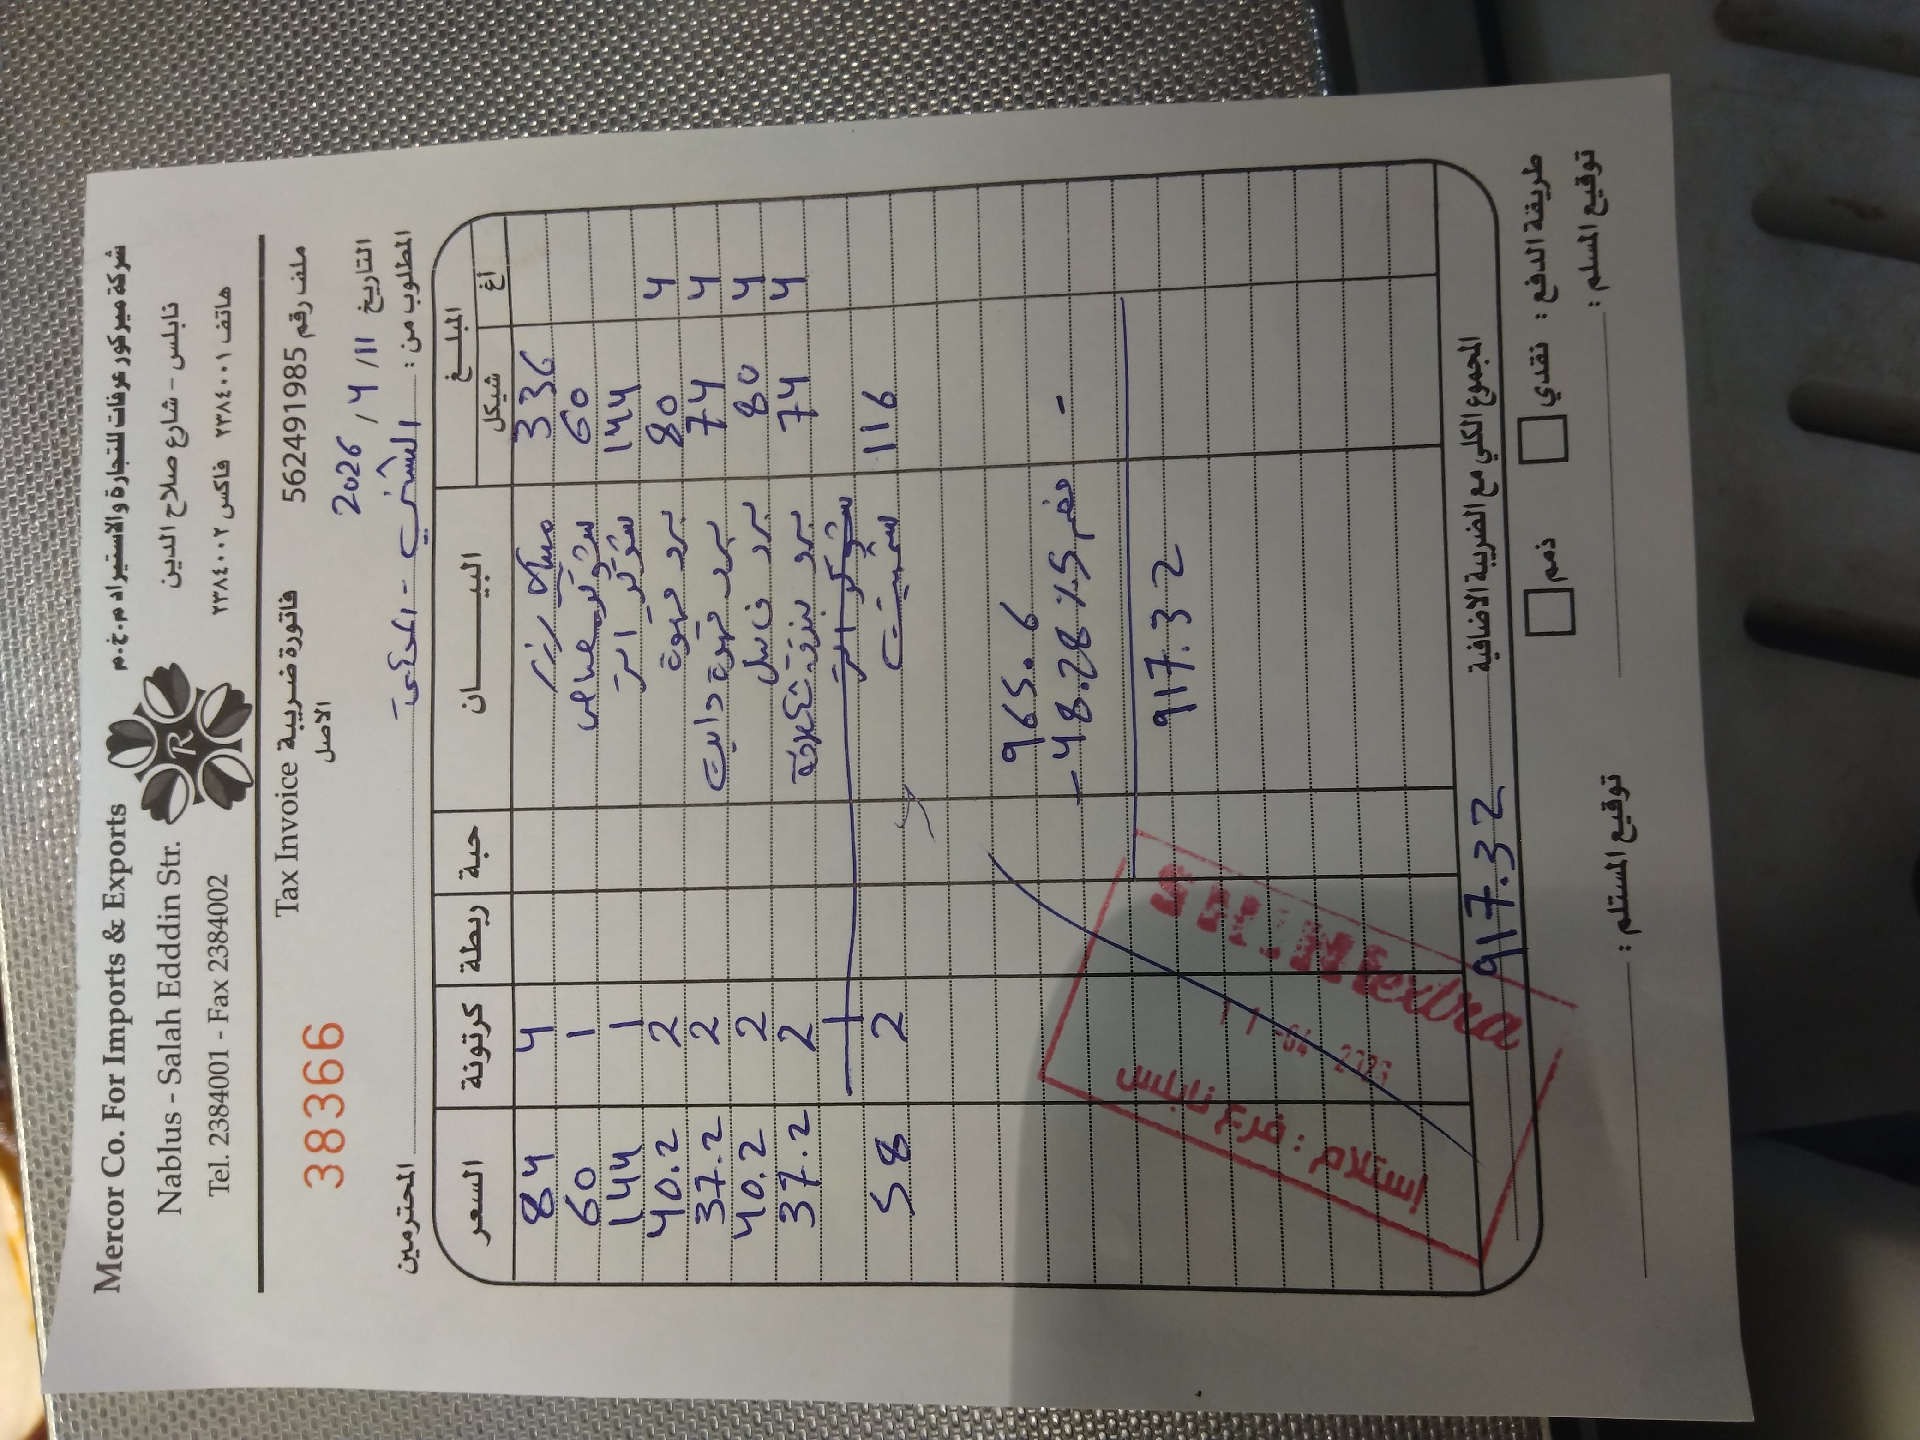 شركة ميركور عرفات للتجارة والاستيراد م.خ.م
Mercor Co. For Imports & Exports
نابلس - شارع صلاح الدين
Nablus - Salah Edddin Str.
هاتف ٢٣٨٤٠٠١ فاكس ٢٣٨٤٠٠٢
Tel. 2384001 - Fax 2384002
R
ملف رقم 562491985
فاتورة ضريبية Tax Invoice
الاصل
38366
التاريخ 11/4/2026
المطلوب من : الشني - المحترمين
المبلغ البيــــان حبة ربطة كرتونة السعر
أغ شيكل
336 4 84
60 1 60
144 ستوكر 1 144
4 80 برو قهوة 2 40.2
4 74 برو قهوة دايت 2 37.2
4 80 برو 2 40.2
4 74 برو 2 37.2
ستوكر 1
116 2 58
965.6
- 48.28 خصم 5%
917.32
المجموع الكلي مع الضريبة الاضافية 917.32
SHINI extra
11-04-2026
إستلام : فرع نابلس
طريقة الدفع : نقدي ذمم
توقيع المسلم : توقيع المستلم :